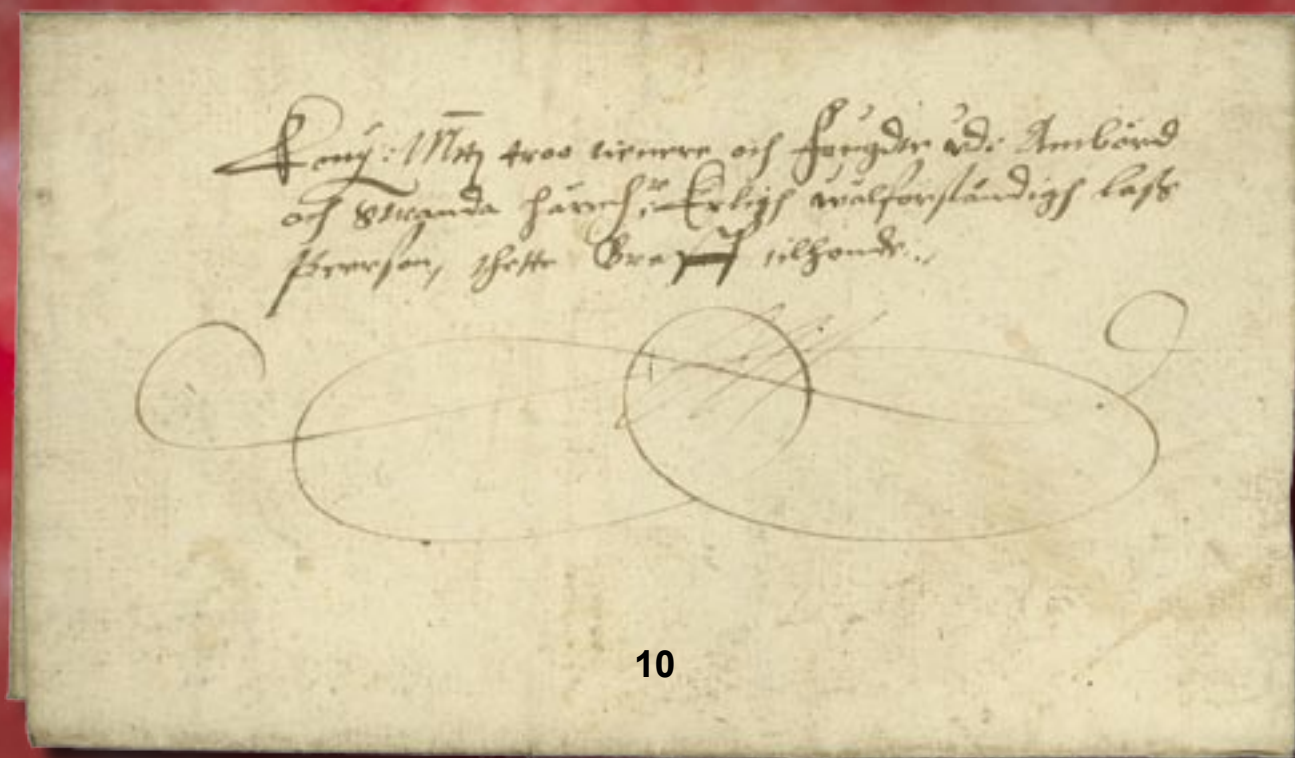 Kong: Mttz troo tienere och fougdte vdi Ambörd
och Stranda häredh, Erligh wälförståndigh lass
Peerson, thette Breff tilhonde.,
10